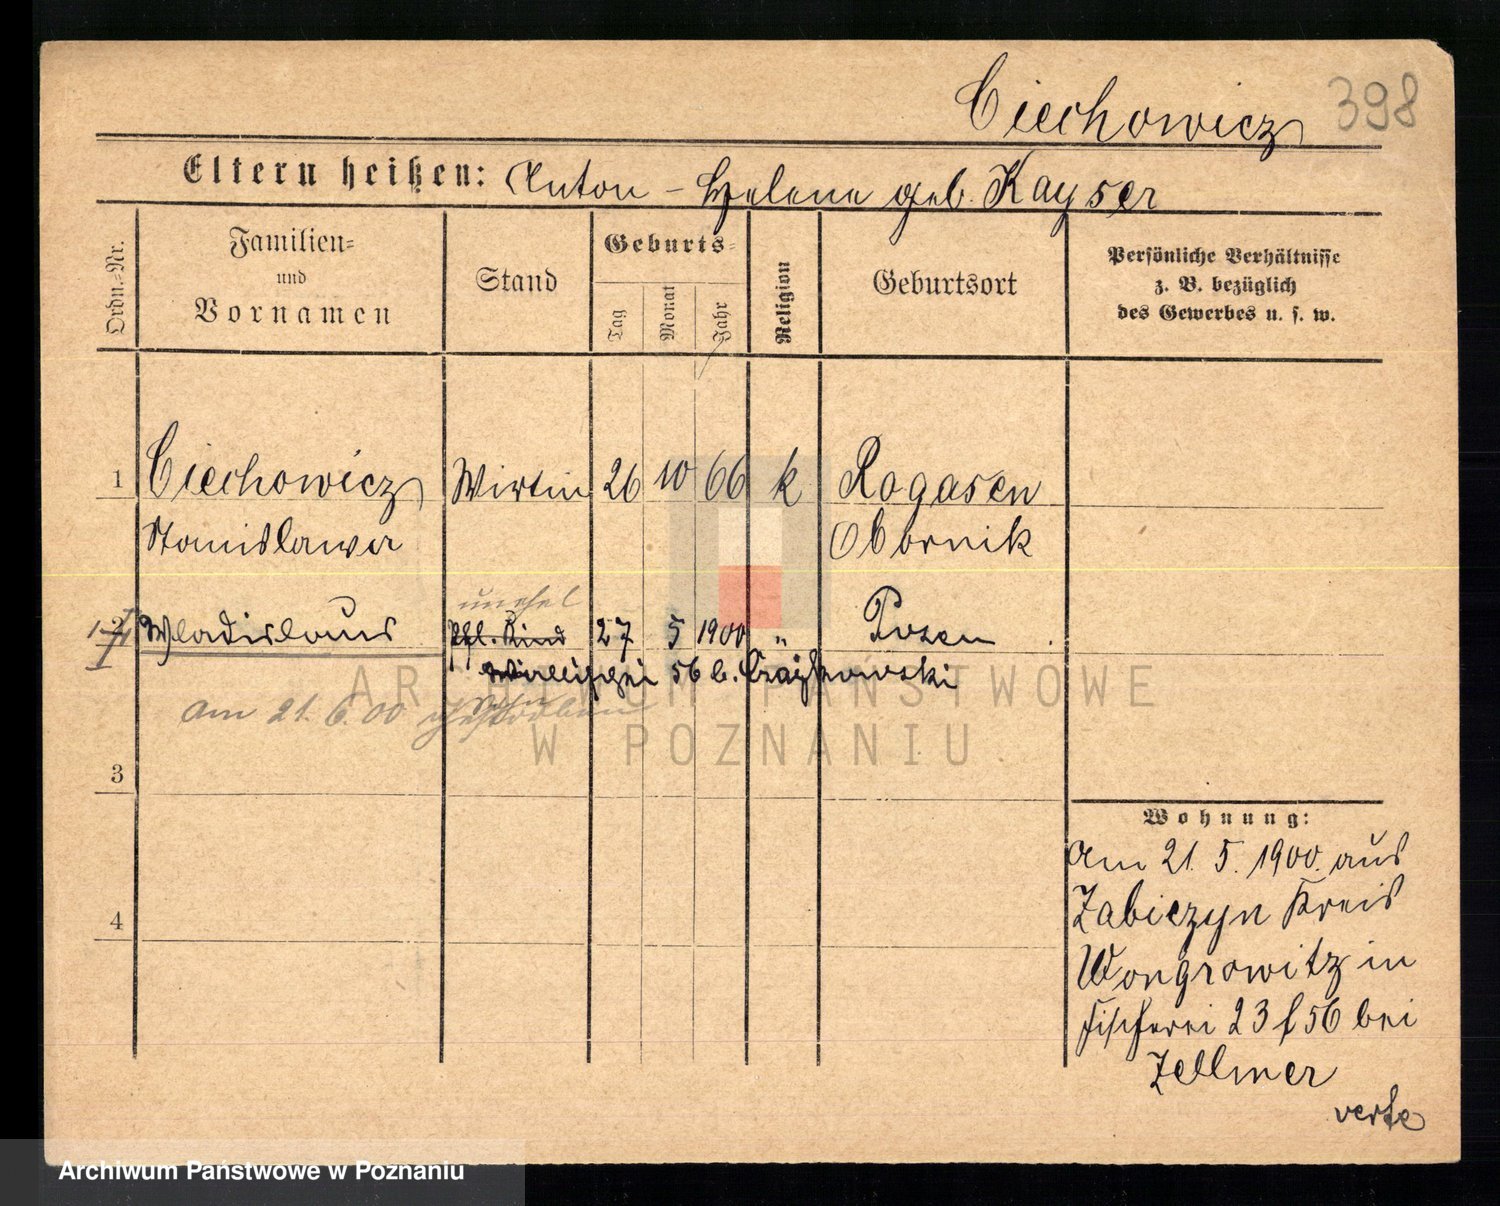 Ciechowicz 398
Eltern heißen: Anton – Helene geb. Kayser
Ordn.-Nr.
Familien-
und
Vornamen
Stand
Geburts-
Tag
Monat
Jahr
Religion
Geburtsort
Persönliche Verhältnisse
z. B. bezüglich
des Gewerbes u. s. w.
1 Ciechowicz Wirtin 26 10 66 k Rogasen
Stanislawa Obornik
unehel
2 Wladislaus Pfl. Kind 27 5 1900 " Posen
Wallischei 56 b. Czajkowski
Am 21. 6. 00 gestorben
3
4
Wohnung:
Am 21. 5. 1900. aus
Zabiczyn Kreis
Wongrowitz in
Fischerei 23 f 56 bei
Zellmer
verte
ARCHIWUM PAŃSTWOWE
W POZNANIU
Archiwum Państwowe w Poznaniu